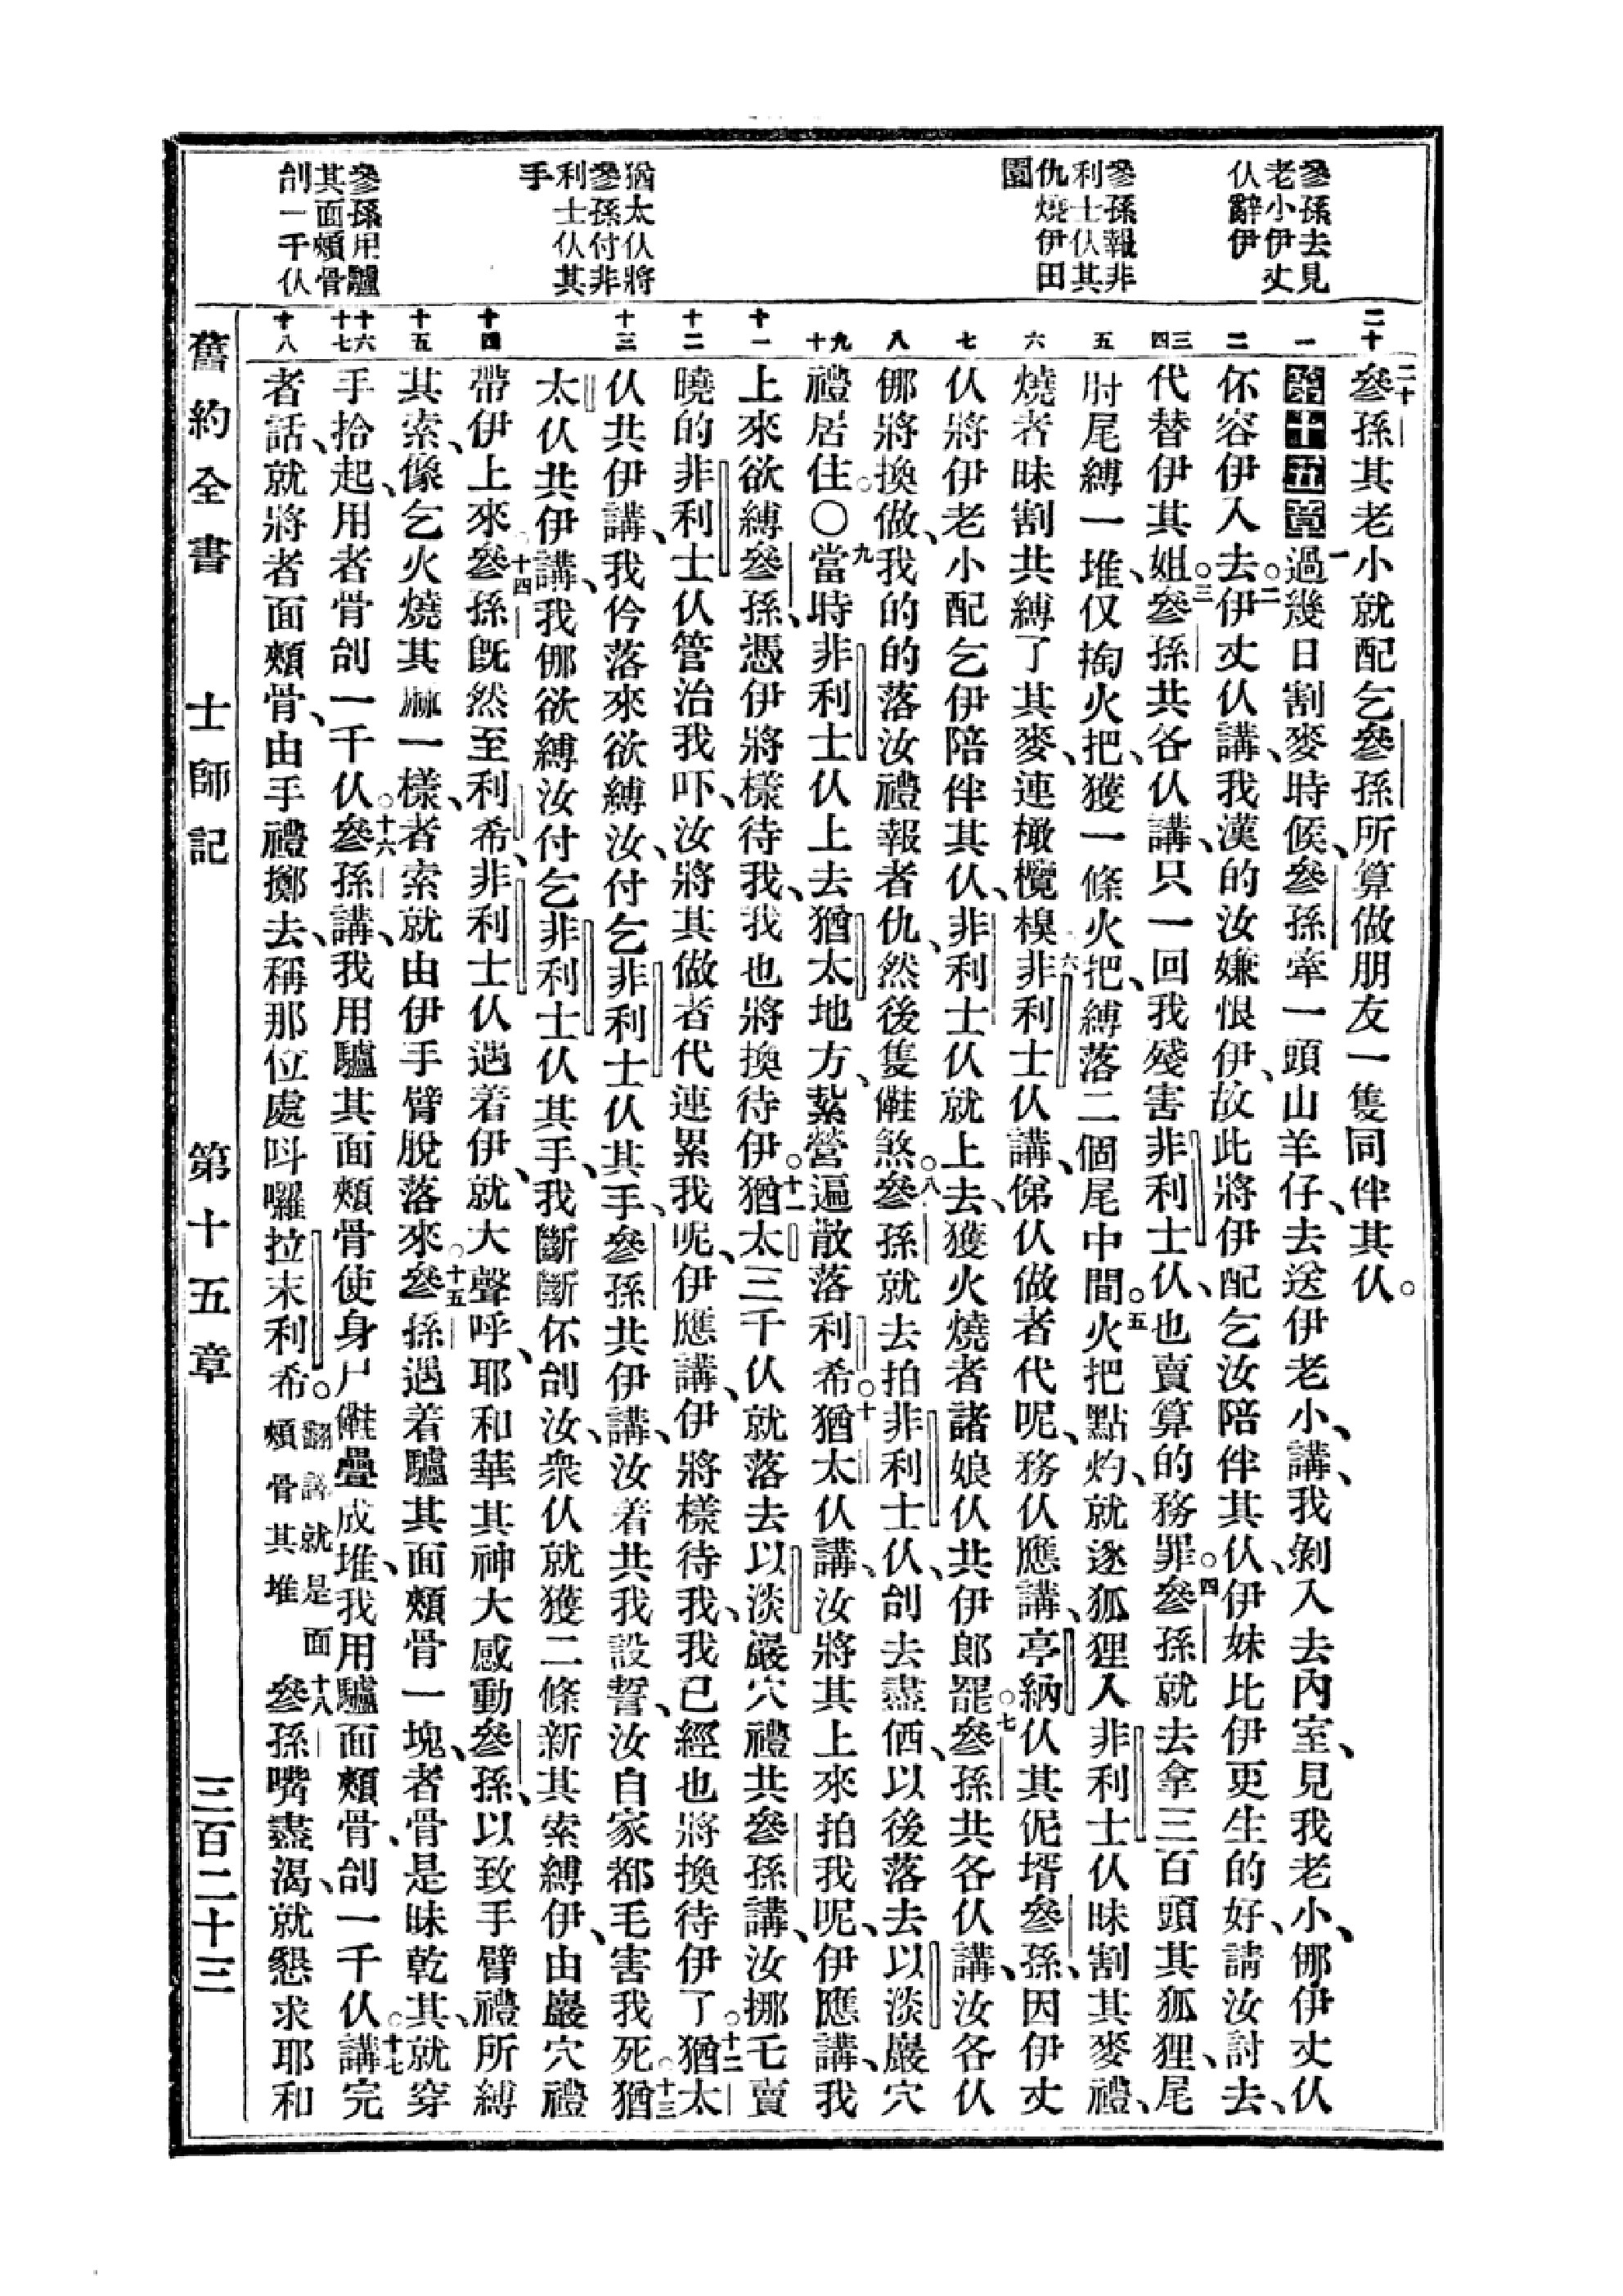 參孫去見
老小伊丈
仫辭伊
參孫報非
利士仫其
仇燒伊田
園
猶太仫將
參孫付非
利士仫其
手
參孫用驢
其面頰骨
刣一千仫
二十
一
二
三四
五
六
七
八
九十
十一
十二
十三
十四
十五
十六十七
十八
二十參孫其老小就配乞參孫、所算做朋友一隻同伴其仫。
第十五章一過幾日割麥時候、參孫牽一頭山羊仔、去送伊老小、講、我剝入去內室、見我老小、挪伊丈仫
伓容伊入去。二伊丈仫講、我漢的汝嫌恨伊、故此將伊配乞汝陪伴其仫、伊妹比伊更生的好、請汝討去、
代替伊其姐。三參孫共各仫講、只一回我殘害非利士仫、也賣算的務罪。四參孫就去拿三百頭其狐狸、尾
肘尾縛一堆、仅掏火把、獲一條火把、縛落二個尾中間。五火把點灼、就逐狐狸入非利士仫昧割其麥禮、
燒者昧割共縛了其麥、連橄欖模。六非利士仫講、俤仫做者代呢、務仫應講、亭納仫其伲壻參孫、因伊丈
仫將伊老小配乞伊陪伴其仫、非利士仫就上去、獲火燒者諸娘仫共伊郎罷。七參孫共各仫講、汝各仫
挪將換做、我的的落汝禮報者仇、然後隻𣍐煞。八參孫就去拍非利士仫、刣去盡㑚、以後落去以淡巖穴
禮居住。〇九當時非利士仫上去猶太地方、紮營遍散落利希。十猶太仫講、汝將其上來拍我呢、伊應講、我
上來欲縛參孫、憑伊將樣待我、我也將換待伊。十一猶太三千仫就落去以淡巖穴禮共參孫講、汝挪毛賣
曉的非利士仫管治我吓、汝將其做者代連累我呢、伊應講、伊將樣待我、我已經也將換待伊了。十二猶太
仫共伊講、我伱落來欲縛汝、付乞非利士仫其手、參孫共伊講、汝着共我設誓、汝自家都毛害我死。十三猶
太仫共伊講、我挪欲縛汝付乞非利士仫其手、我斷斷伓刣汝、眾仫就獲二條新其索縛伊、由巖穴禮
帶伊上來。十四參孫旣然至利希、非利士仫遇着伊、就大聲呼、耶和華其神大感動參孫、以致手臂禮所縛
其索、像乞火燒其麻一樣、者索就由伊手臂脫落來。十五參孫遇着驢其面頰骨一塊、者骨是昧乾其、就穿
手拾起、用者骨刣一千仫。十六參孫講、我用驢其面頰骨使身尸𣍐疊成堆、我用驢面頰骨、刣一千仫。十七講完
者話、就將者面頰骨、由手禮擲去、稱那位處呌囉拉末利希。翻譯就是面頰骨其堆十八參孫嘴盡渴、就懇求耶和
舊約全書 士師記 第十五章 三百二十三